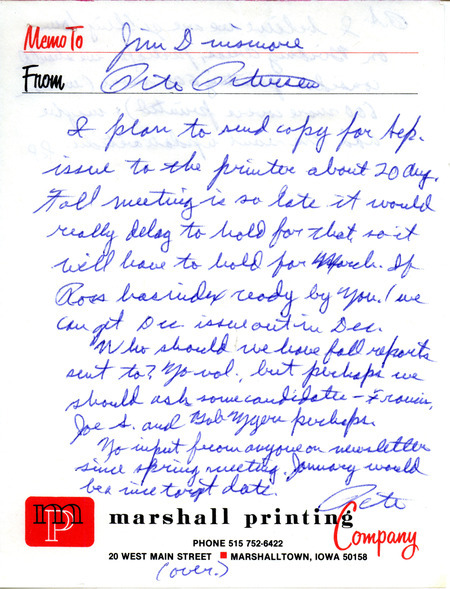 Memo To Jim Dinsmore
From Pete Petersen
I plan to send copy for Sep.
issue to the printer about 20 Aug.
Fall meeting is so late it would
really delay to hold for that, so it
will have to hold for March. If
Ross has index ready by Nov. 1 we
can get Dec. issue out in Dec.
Who should we have fall reports
sent to? No vol., but perhaps we
should ask some candidates - Francis,
Joe S. and Bob Myers perhaps.
No input from anyone on newsletter
since spring meeting. January would
be a nice target date.
Pete
mpc marshall printing
Company
PHONE 515 752-6422
20 WEST MAIN STREET ■ MARSHALLTOWN, IOWA 50158
(over.)